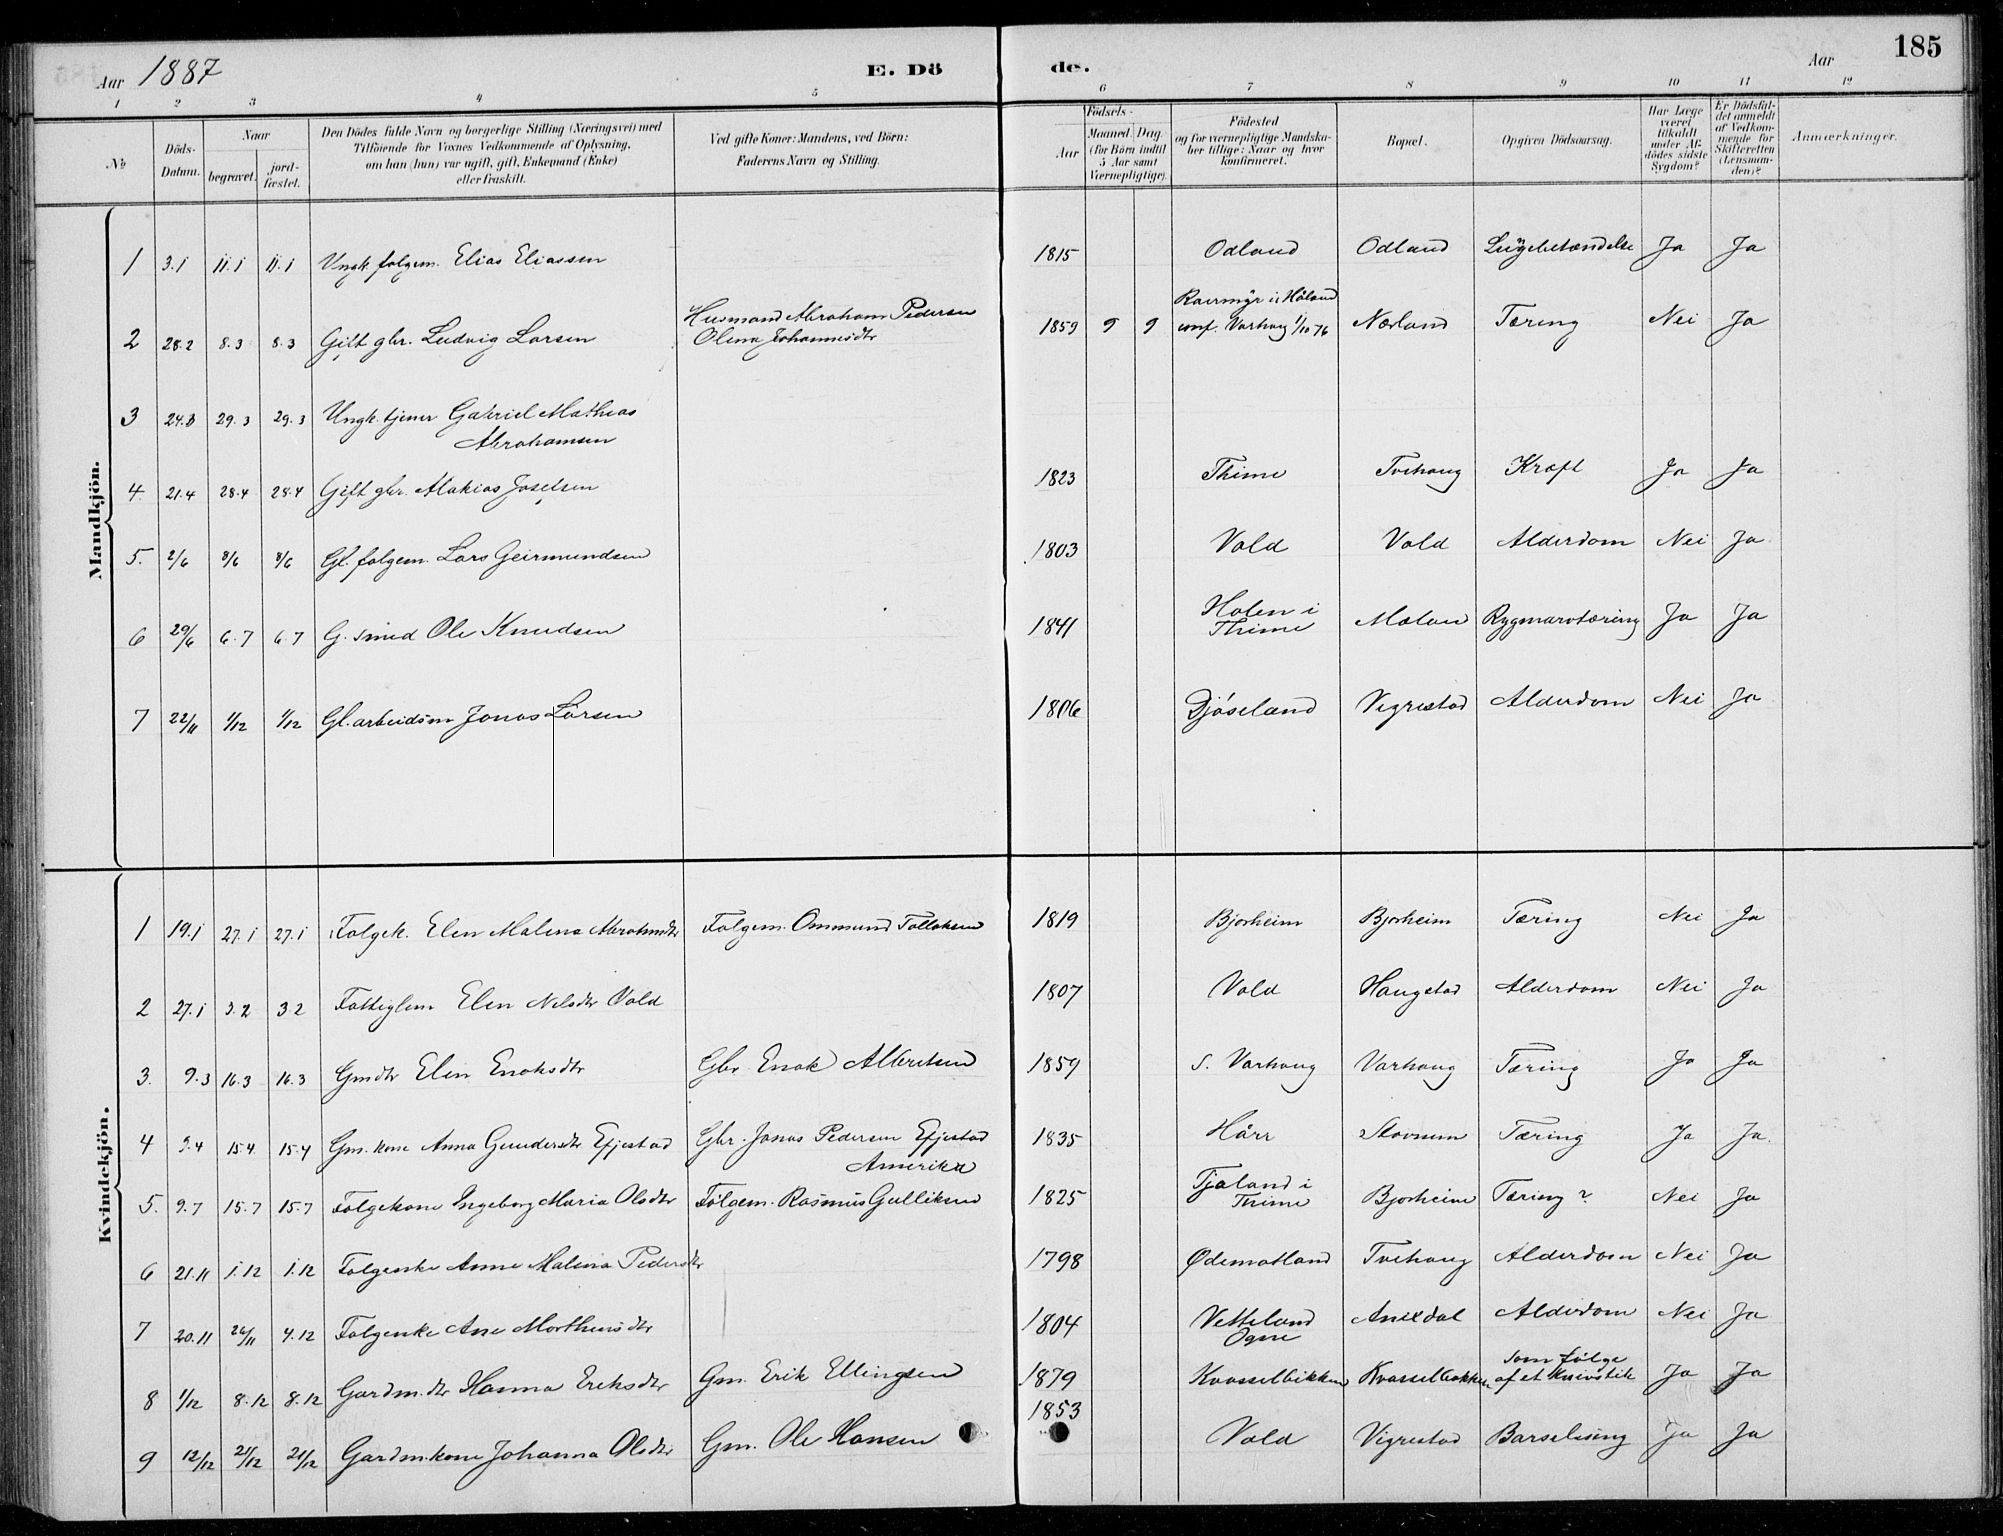 Aar 1887 E. Dö de. Aar 185
1 2 3 4 5 6 7 8 9 10 11 12
№
Döds-
Datum.
Naar
begravet.
jord-
fæstet.
Den Dödes fulde Navn og borgerlige Stilling (Næringsvei) med
Tilföiende for Voxnes Vedkommende af Oplysning,
om han (hun) var ugift, gift, Enkemand (Enke)
eller fraskilt.
Ved gifte Koner: Mandens, ved Börn:
Faderens Navn og Stilling.
Födsels-
Aar
Maaned. Dag.
(for Börn indtil
5 Aar samt
Værnepligtige).
Födested
og for værnepligtige Mandska-
ber tillige: Naar og hvor
konfirmeret.
Bopæl.
Opgiven Dödsaarsag.
Har Læge
været
tilkaldt
under Af-
dödes sidste
Sygdom?
Er Dödsfal-
det anmeldt
af Vedkom-
mende for
Skifteretten
(Lensman-
den)?
Anmærkninger.
Mandkjön.
1 3.1 11.1 11.1 Ungk. folgem. Elias Eliassen 1815 Odland Odland Ja Ja
2 28.2 8.3 8.3 Gift gbr. Ludvig Larsen Husmand Abraham Pedersen
Olena Johannesdtr 1859 9 9 i Håland
conf. Varhaug 1/10 76 Nærland Tæring Nei Ja
3 24.3 29.3 29.3 Ungk. tjener Gabriel Mathias
Abrahamsen
4 21.4 28.4 28.4 Gift gbr. Malkias Josefsen 1823 Thime Tvihaug Kræft Ja Ja
5. 2/6 8/6 8/6 Gl. folgem. Lars Geirmundsen 1803 Vold Vold Alderdom Nei Ja
6 29/6 6.7 6.7 G. smed Ole Knudsen 1841 Holen i
Thime Mæland Rygmarvtæring Ja Ja
7 22/11 1/12 1/12 Gl. arbeidsm Jonas Larsen 1806 Djöseland Vigrestad Alderdom Nei Ja
Kvindekjön.
1 19.1 27.1 27.1 Folgek. Elen Malena Abrahmdtr Folgem. Ommund Tolloksen 1819 Bjorheim Bjorheim Tæring Nei Ja
2 27.1 3.2 3.2 Fattiglem Elen Nelsdtr Vold 1807 Vold Haugstad Alderdom Nei Ja
3. 9.3 16.3 16.3 Gmdtr Elen Enoksdtr Gbr. Enok Albretsen 1859 S. Varhaug Varhaug Tæring Ja Ja
4 9.4 15.4 15.4 Gm. kone Anna Gundersdtr Efjestad Gbr. Jonas Pedersen Efjestad
Amerika 1835 Hårr Stavnem Tæring Ja Ja.
5. 9.7 15.7 15.7 Folgekone Ingeborg Maria Olsdtr Folgem. Rasmus Gulliksen 1825 Tjaland i
Thime Bjorheim Tæring? Nei Ja
6 21.11 1.12 1.12 Folgenke Anne Malena Pedersdtr 1798 Ødemotland Tvihaug Alderdom Nei Ja
7 20.11 26/11 4.12 Folgenke Ane Morthensdtr 1804 Vetteland
Ogne Anixdal Alderdom Nei Ja
8 1/12 8.12 8.12 Gardm.dtr Hanna Eriksdtr Gm. Erik Ellingsen 1879 Kvasselbakken Kvasselbakken Som følge
af et Knivstik Ja Ja
9 12/12 21/12 21/12 Gardm.kone Johanna Olsdtr Gm. Ole Hansen 1853 Vold Vigrestad Barselseng Ja Ja